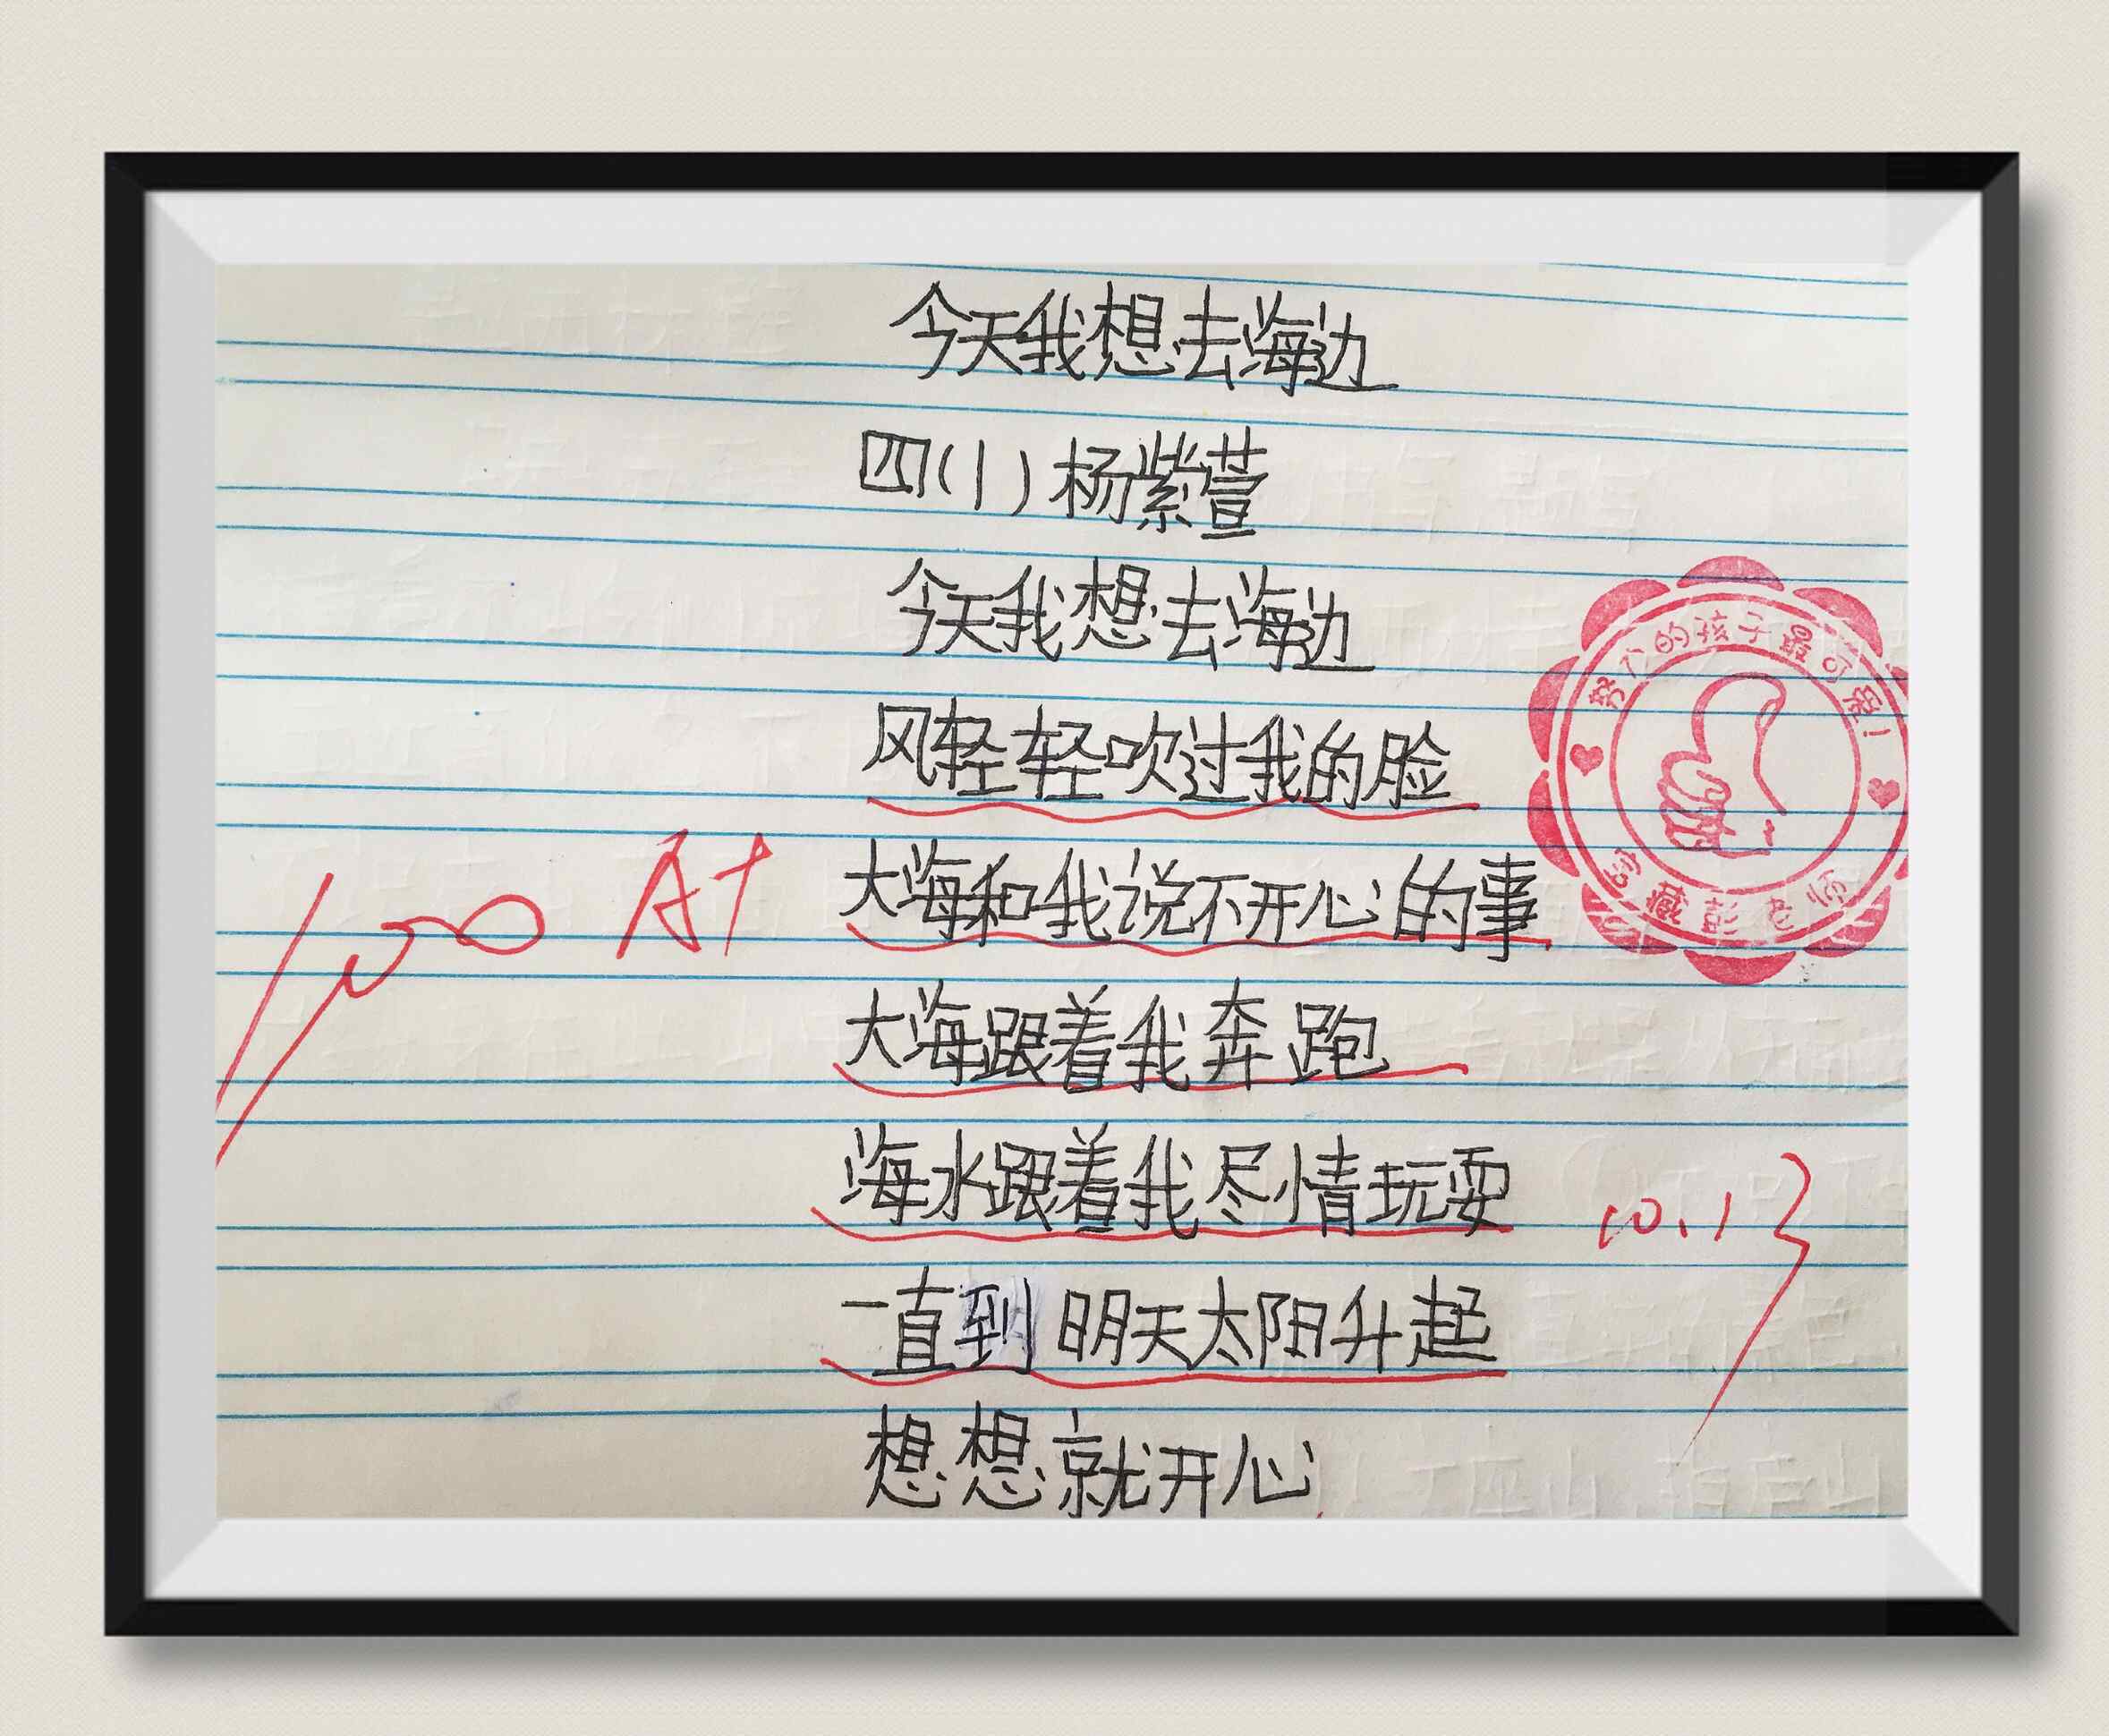 今天我想去海边
四(1)杨紫萱
今天我想去海边
风轻轻吹过我的脸
努力的孩子最可爱!
大海和我说不开心的事
100 A+
宝藏彭老师
大海跟着我奔跑
海水跟着我尽情玩耍
10.13
一直到明天太阳升起
想想就开心